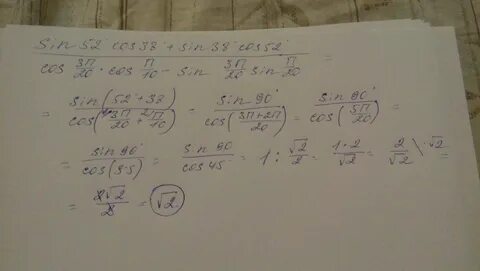 sin 52° cos 38° + sin 38° cos 52° / cos 3π/20 · cos π/10 − sin 3π/20 sin π/10 =
= sin(52° + 38°) / cos(3π/20 + 2)π/10) = sin 90° / cos(3π+2π/20) = sin 90° / cos(5π/20) =
= sin 90° / cos(45) = sin 90 / cos 45° = 1 : √2/2 = 1·2/√2 = 2/√2 \·√2 =
= 2√2/2 = √2